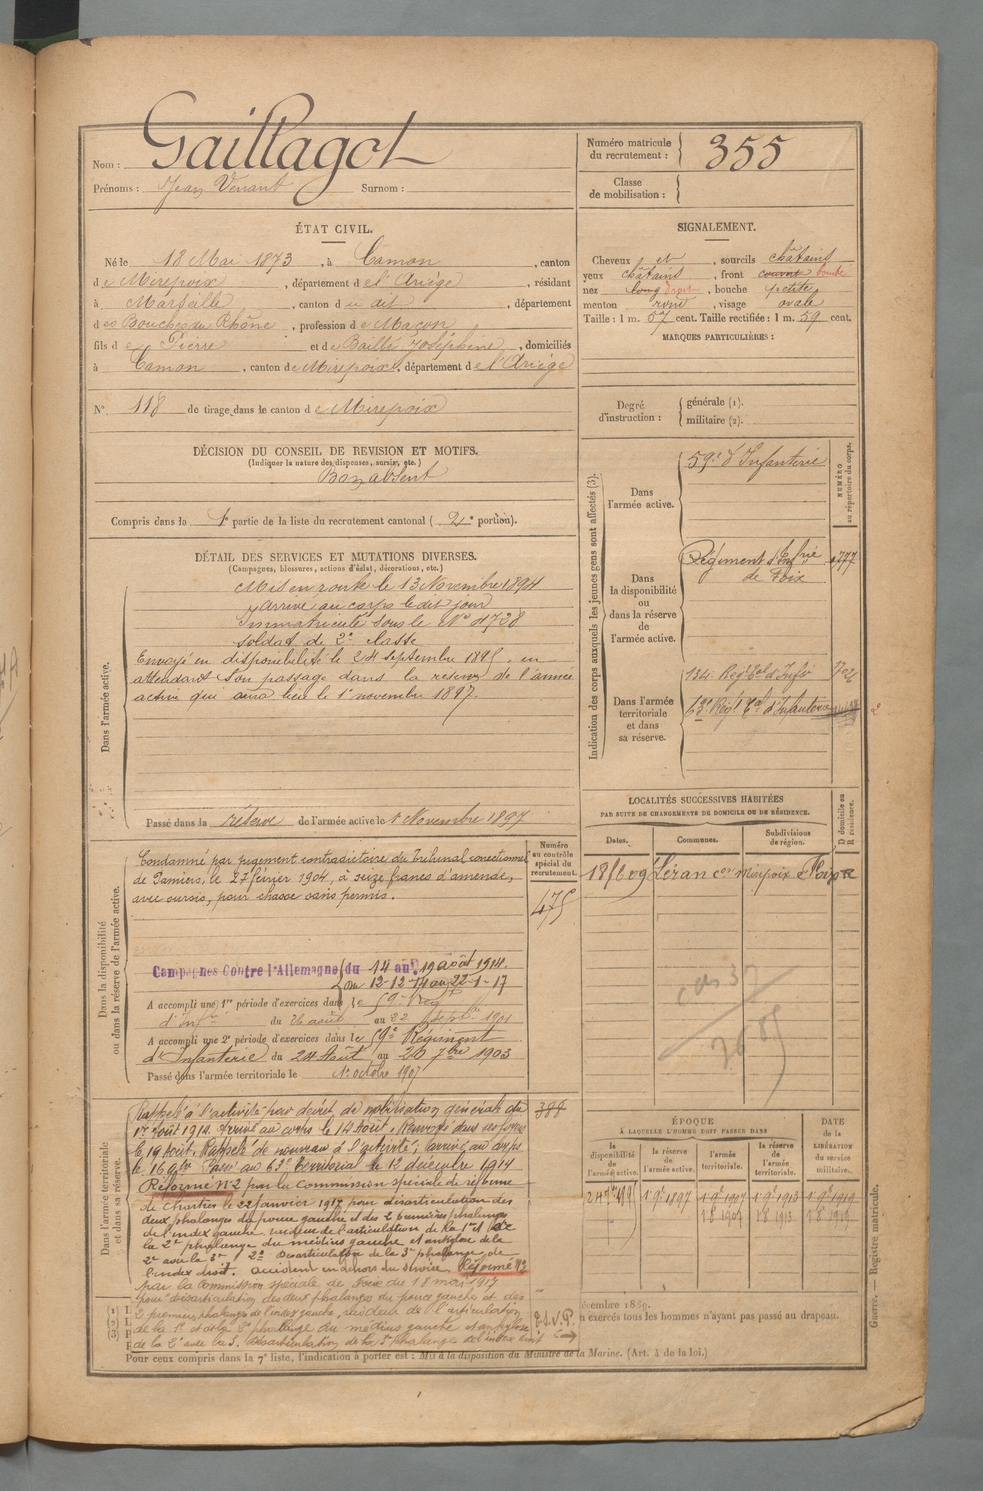 Gaillagot
Nom :
Prénoms : Jean Venant Surnom :
Numéro matricule du recrutement : 355
Classe de mobilisation :
ÉTAT CIVIL.
Né le 18 Mai 1873, à Camon, canton
de Mirepoix, département de l'Ariège, résidant
à Marseille, canton du dit, département
des Bouches du Rhône, profession de Maçon
fils de Pierre et de Baillé Joséphine, domiciliés
à Camon, canton de Mirepoix, département de l'Ariège
N° 118 de tirage dans le canton de Mirepoix
SIGNALEMENT.
Cheveux et, sourcils châtains
yeux châtains, front couvert bombé
nez long droit, bouche petite
menton rond, visage ovale
Taille : 1 m. 57 cent. Taille rectifiée : 1 m. 59 cent.
MARQUES PARTICULIÈRES :
Degré d'instruction : générale (1).
militaire (2).
DÉCISION DU CONSEIL DE REVISION ET MOTIFS.
(Indiquer la nature des dispenses, sursis, etc.)
Bon absent
Compris dans la 1e partie de la liste du recrutement cantonal (2e portion).
DÉTAIL DES SERVICES ET MUTATIONS DIVERSES.
(Campagnes, blessures, actions d'éclat, décorations, etc.)
Dans l'armée active.
Mis en route le 13 Novembre 1894
arrivé au corps le dit jour
Immatriculé sous le N° 4728
soldat de 2e classe
Envoyé en disponibilité le 24 septembre 1895, en
attendant son passage dans la réserve de l'armée
active qui aura lieu le 1er novembre 1897.
Passé dans la réserve de l'armée active le 1 Novembre 1897
Indication des corps auxquels les jeunes gens sont affectés (3).
NUMÉRO au répertoire du corps.
Dans l'armée active.
59e d'Infanterie
Dans la disponibilité ou dans la réserve de l'armée active.
Régiment d'Infrie
de Foix
Dans l'armée territoriale et dans sa réserve.
134 Régt Tal d'Infie
63e Régt Tal d'Infanterie
2
LOCALITÉS SUCCESSIVES HABITÉES
PAR SUITE DE CHANGEMENTS DE DOMICILE OU DE RÉSIDENCE.
D domicile ou R résidence.
Dates. Communes. Subdivisions de région.
Léran con Mirepoix Foix R
Dans la disponibilité ou dans la réserve de l'armée active.
Numéro au contrôle spécial du recrutement.
475
Condamné par jugement contradictoire du Tribunal correctionnel
de Pamiers, le 27 février 1904, à seize francs d'amende,
avec sursis, pour chasse sans permis.
Campagnes Contre l'Allemagne du 14 au 19 août 1914.
du 12-12-14 au 22-1-17
A accompli une 1re période d'exercices dans le 59e Rég
d'Infie du 26 août au 22 Septbre 1901
A accompli une 2e période d'exercices dans le 59e Régiment
d'Infanterie du 24 Août au 20 7bre 1903
Passé dans l'armée territoriale le 1er octobre 1907
Dans l'armée territoriale et dans sa réserve.
388
Rappelé à l'activité par décret de mobilisation générale du
1er août 1914. Arrivé au corps le 14 Août. Renvoyé dans ses foyers
le 19 Août. Rappelé de nouveau à l'activité, arrivé au corps
le 16 9bre. Passé au 63e Territorial le 12 décembre 1914
Réformé N°2 par la Commission spéciale de réforme
de Chartres le 22 janvier 1917 pour désarticulation des
deux phalanges du pouce gauche et des 2 premières phalanges
de l'index gauche, raideur de l'articulation de la 1e et de
la 2e phalange du médius gauche et ankylose de la
2e avec la 3e. 2° Désarticulation de la 3e phalange de
l'index droit. accident en dehors du service. Réformé N°2
par la Commission spéciale de Foix du 18 mai 1917
pour désarticulation des deux phalanges du pouce gauche et des
2 premières phalanges de l'index gauche, raideur de l'articulation
de la 1e et de la 2e phalange du médius gauche et ankylose
de la 2e avec la 3e. Désarticulation de la 3e phalange de l'index droit
ÉPOQUE
À LAQUELLE L'HOMME DOIT PASSER DANS
la disponibilité de l'armée active. la réserve de l'armée active. l'armée territoriale. la réserve de l'armée territoriale. DATE de la LIBÉRATION du service militaire.
24 7bre 1895 1 9e 1897 1 9e 1907 1 9e 1913 1 9e 1919
1 8 1907 1 8 1913 1 8 1919
écembre 1889.
a exercés tous les hommes n'ayant pas passé au drapeau.
Pour ceux compris dans la 7e liste, l'indication à porter est : Mis à la disposition du Ministre de la Marine. (Art. 4 de la loi.)
Guerre. — Registre matricule.